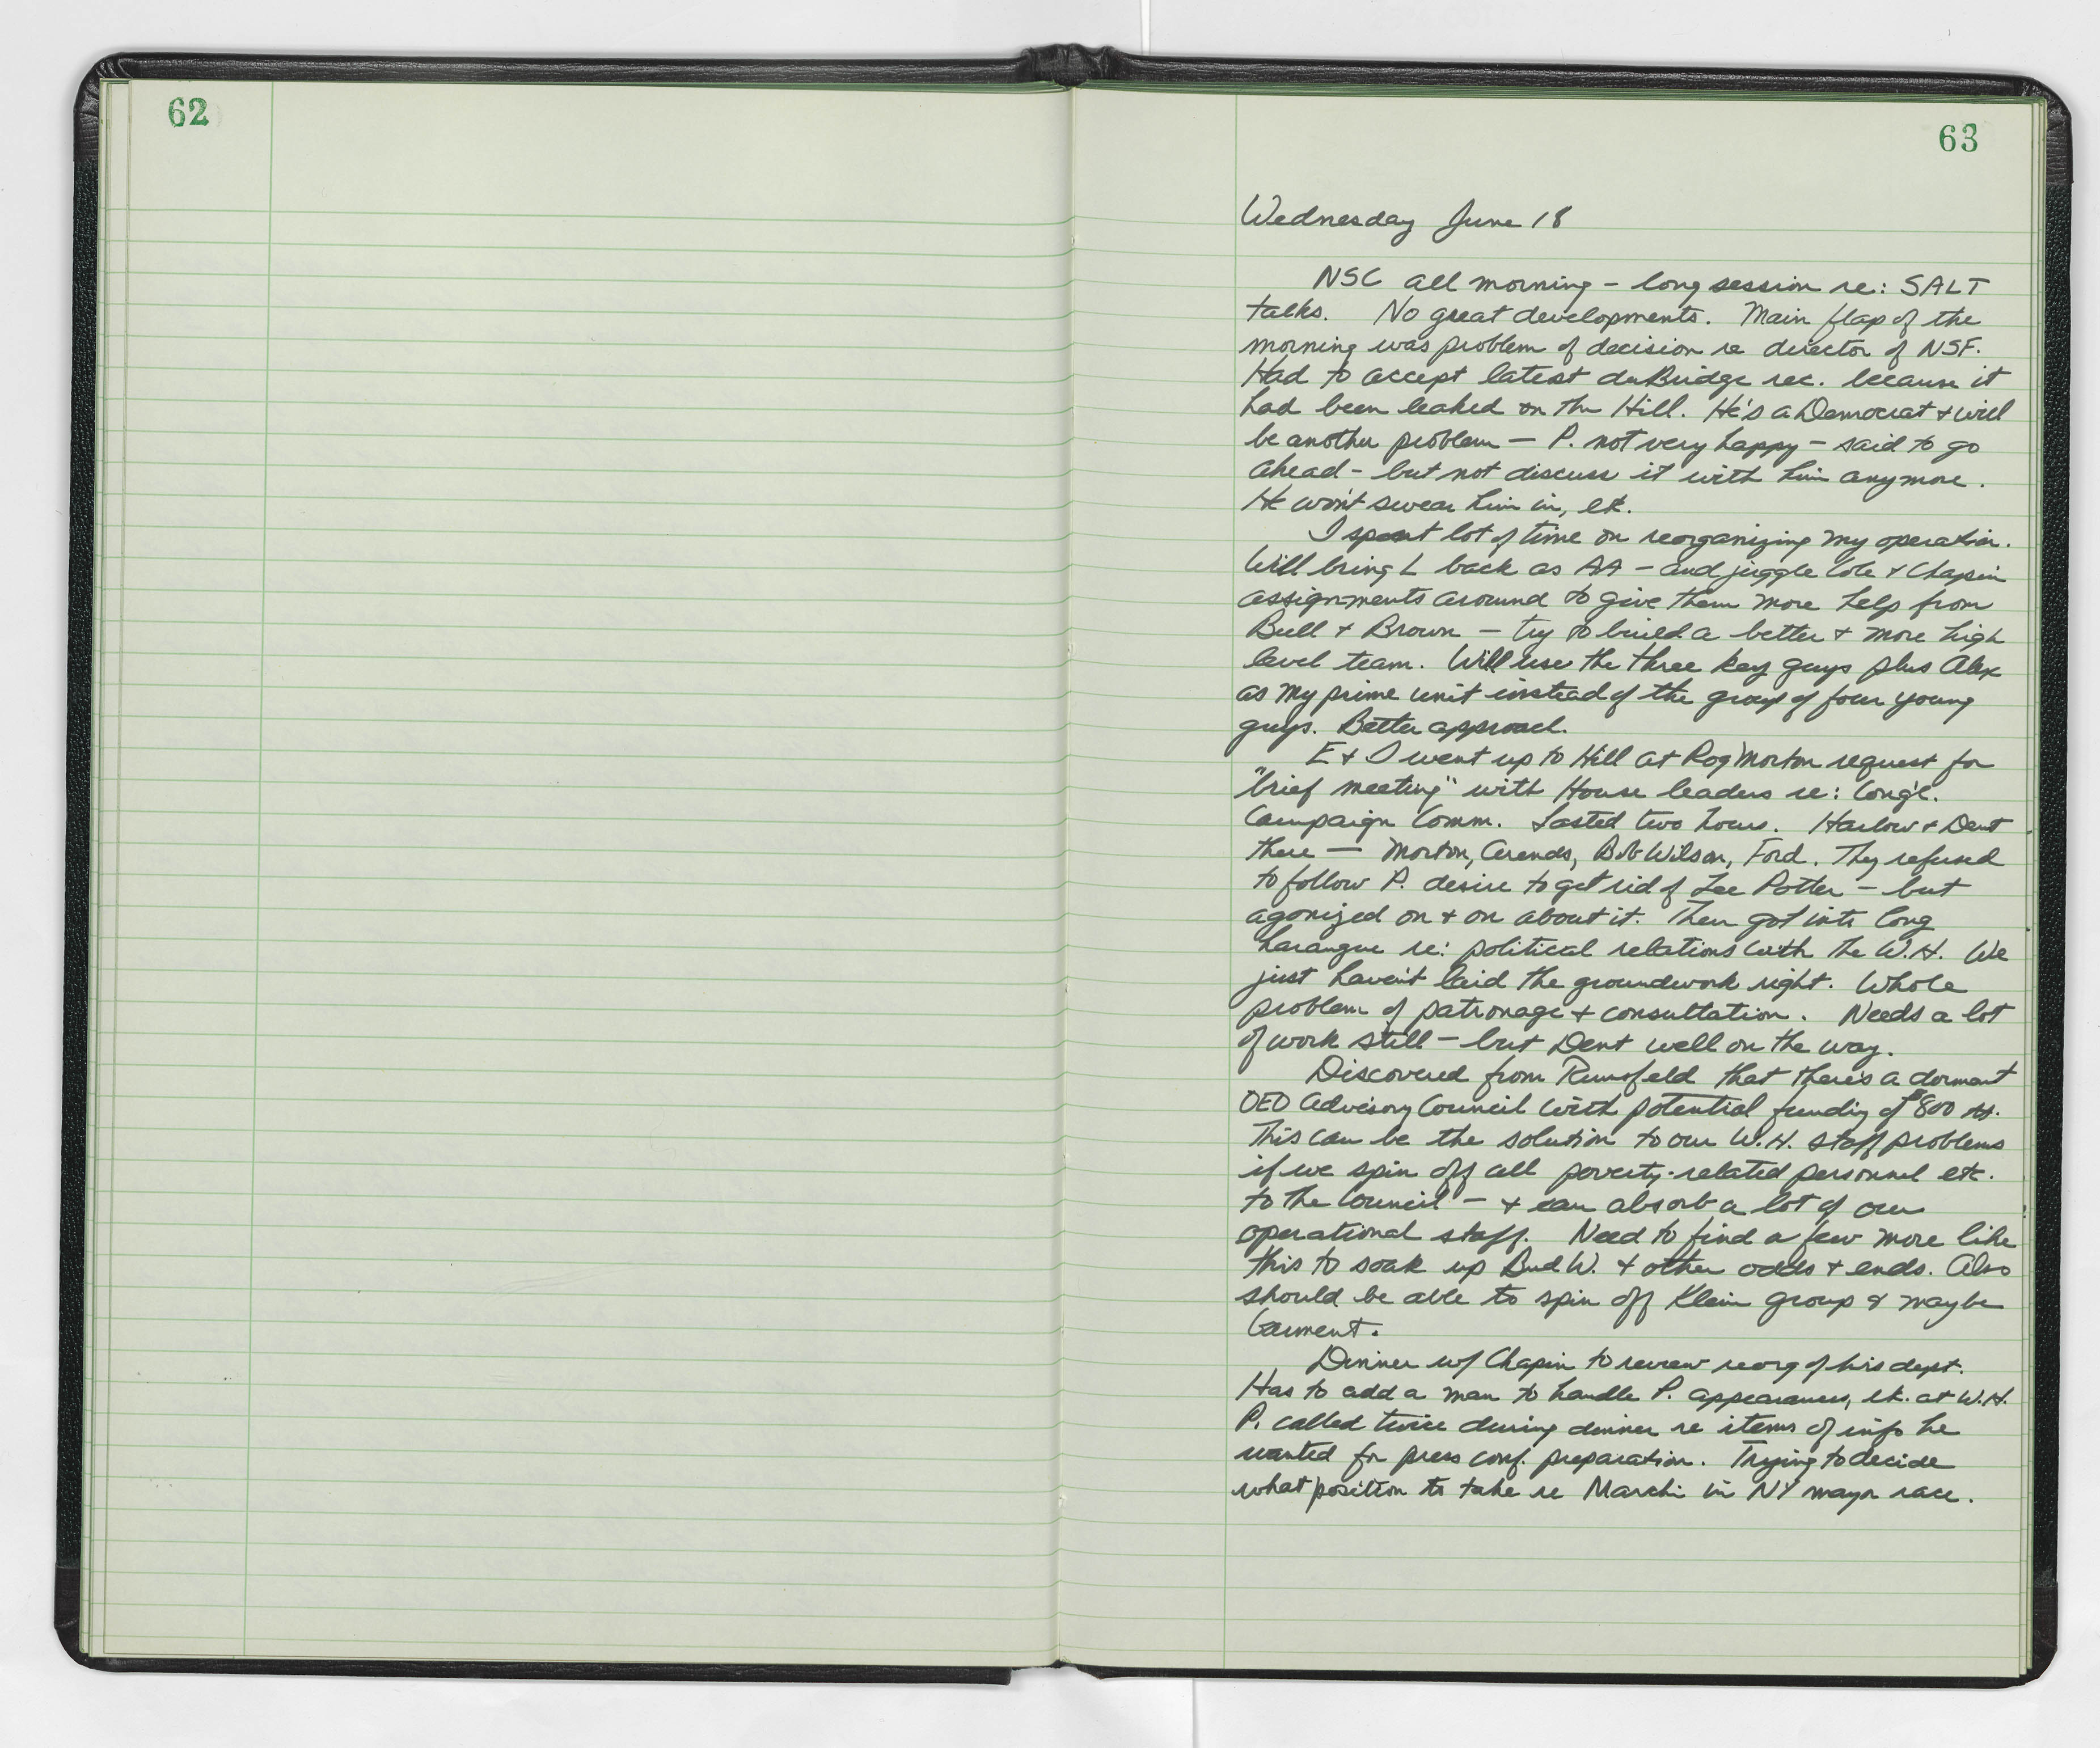 62
63
Wednesday June 18
NSC all morning - long session re: SALT
talks. No great developments. Main flap of the
morning was problem of decision re director of NSF.
Had to accept latest duBridge rec. because it
had been leaked on the Hill. He's a Democrat & will
be another problem — P. not very happy - said to go
ahead - but not discuss it with him anymore.
He won't swear him in, etc.
I spent lot of time on reorganizing my operation.
Will bring L back as AA - and juggle Cole & Chapin
assignments around to give them more help from
Bull & Brown - try to build a better & more high
level team. Will use the three key guys plus Alex
as my prime unit instead of the group of four young
guys. Better approach.
E & I went up to Hill at Rog Morton request for
"brief meeting" with House leaders re: Cong'l.
Campaign Comm. Lasted two hours. Harlow & Dent
there — Morton, Arends, Bob Wilson, Ford. They refused
to follow P. desire to get rid of Lee Potter - but
agonized on & on about it. Then got into long
harangue re: political relations with the W.H. We
just haven't laid the groundwork right. Whole
problem of patronage & consultation. Needs a lot
of work still - but Dent well on the way.
Discovered from Rumsfeld that there's a dormant
OEO Advisory Council with potential funding of $800
This can be the solution to our W.H. staff problems
if we spin off all poverty-related personnel etc.
to the Council - & can absorb a lot of our
operational staff. Need to find a few more like
this to soak up Bud W. & other odds & ends. Also
should be able to spin off Klein group & maybe
Garment.
Dinner w/ Chapin to review reorg of his dept.
Has to add a man to handle P. appearances, etc. at W.H.
P. called twice during dinner re items of info he
wanted for press conf. preparation. Trying to decide
what position to take re Marchi in NY mayor race.